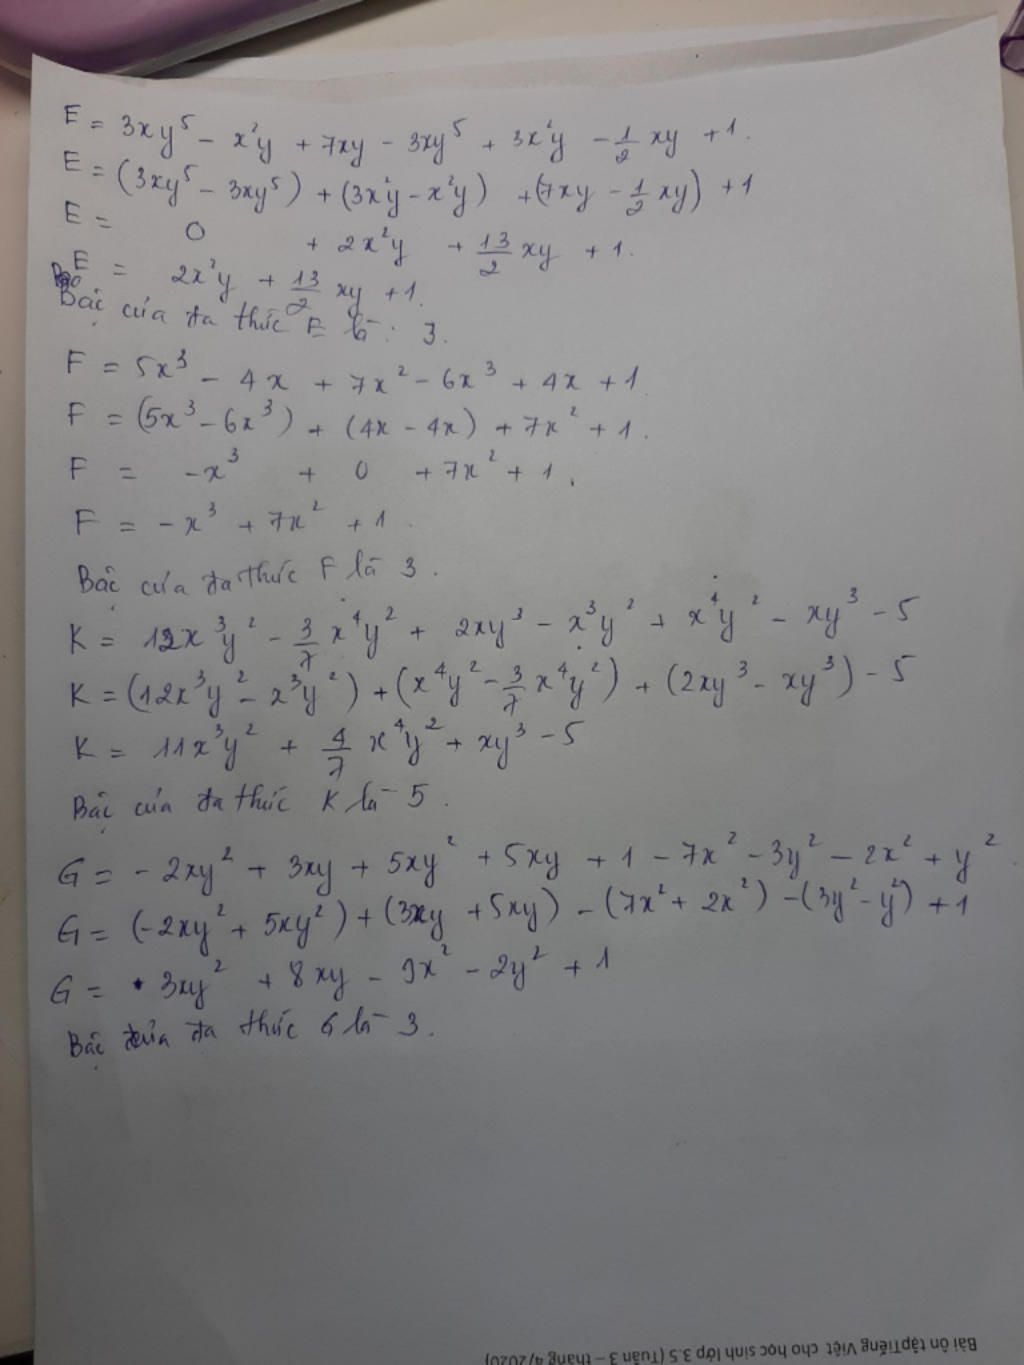 E = 3xy⁵ - x²y + 7xy - 3xy⁵ + 3x²y - 1/2 xy + 1.
E = (3xy⁵ - 3xy⁵) + (3x²y - x²y) + (7xy - 1/2 xy) + 1
E = 0 + 2x²y + 13/2 xy + 1.
E = 2x²y + 13/2 xy + 1.
Bậc của đa thức E là: 3.
F = 5x³ - 4x + 7x² - 6x³ + 4x + 1
F = (5x³ - 6x³) + (4x - 4x) + 7x² + 1.
F = -x³ + 0 + 7x² + 1.
F = -x³ + 7x² + 1.
Bậc của đa thức F là 3.
K = 12x³y² - 3/7 x⁴y² + 2xy³ - x³y² + x⁴y² - xy³ - 5
K = (12x³y² - x³y²) + (x⁴y² - 3/7 x⁴y²) + (2xy³ - xy³) - 5
K = 11x³y² + 4/7 x⁴y² + xy³ - 5
Bậc của đa thức K là 5.
G = -2xy² + 3xy + 5xy² + 5xy + 1 - 7x² - 3y² - 2x² + y².
G = (-2xy² + 5xy²) + (3xy + 5xy) - (7x² + 2x²) - (3y² - y²) + 1
G = 3xy² + 8xy - 9x² - 2y² + 1
Bậc của đa thức G là 3.
Bài ôn tập Tiếng Việt cho học sinh lớp 3.5 (Tuần 3 – tháng 4/2020)